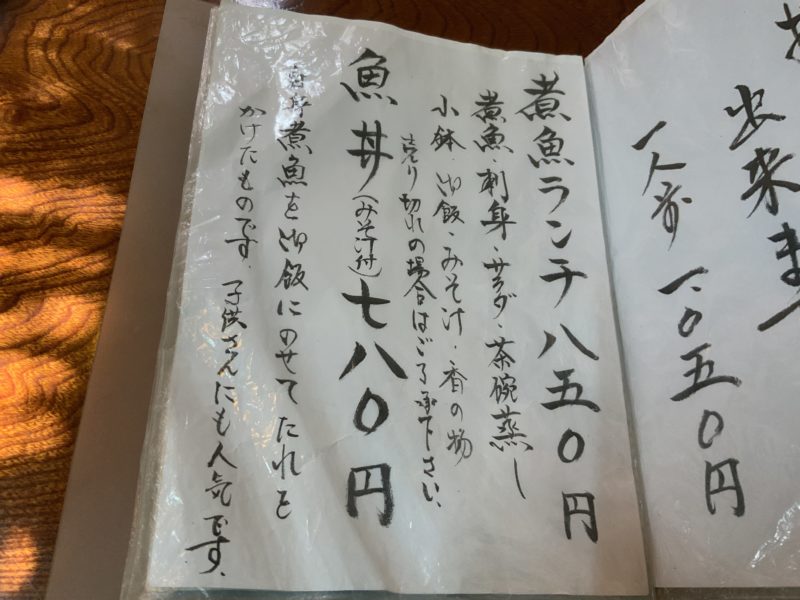 出来ます
一人前 一、〇五〇円
煮魚ランチ 八五〇円
煮魚・刺身・サラダ・茶碗蒸し
小鉢・御飯・みそ汁・香の物
売り切れの場合はご了承下さい、
魚丼(みそ汁付)七八〇円
煮魚を御飯にのせてたれを
かけたものです、子供さんにも人気です、